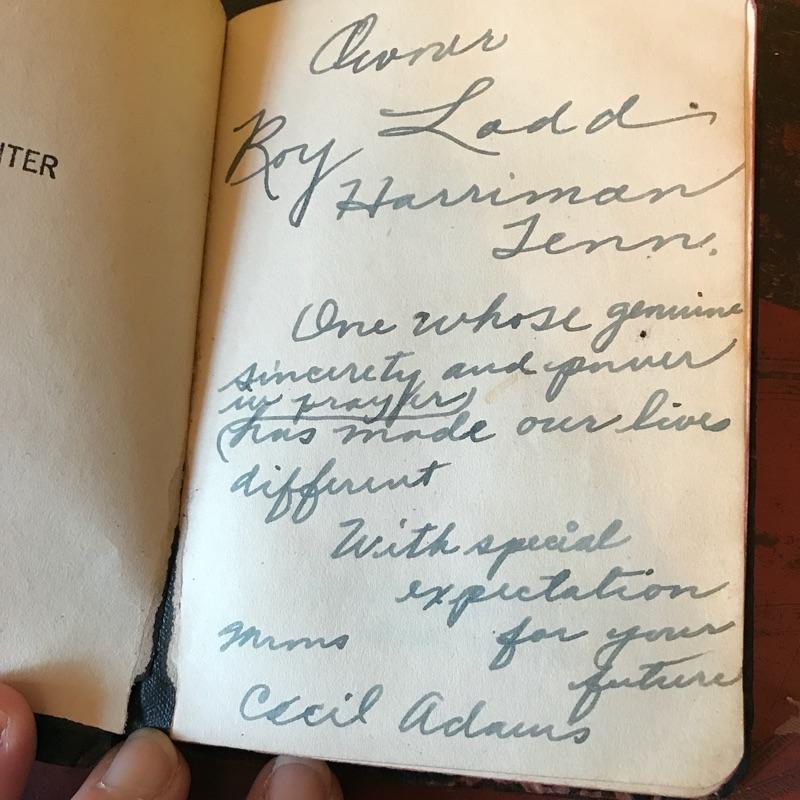 NTER
Owner
Roy Ladd
Harriman
Tenn.
One whose genuine
sincerity and power
in prayer
(has made our lives
different
With special
expectation
for your
future
Cecil Adams